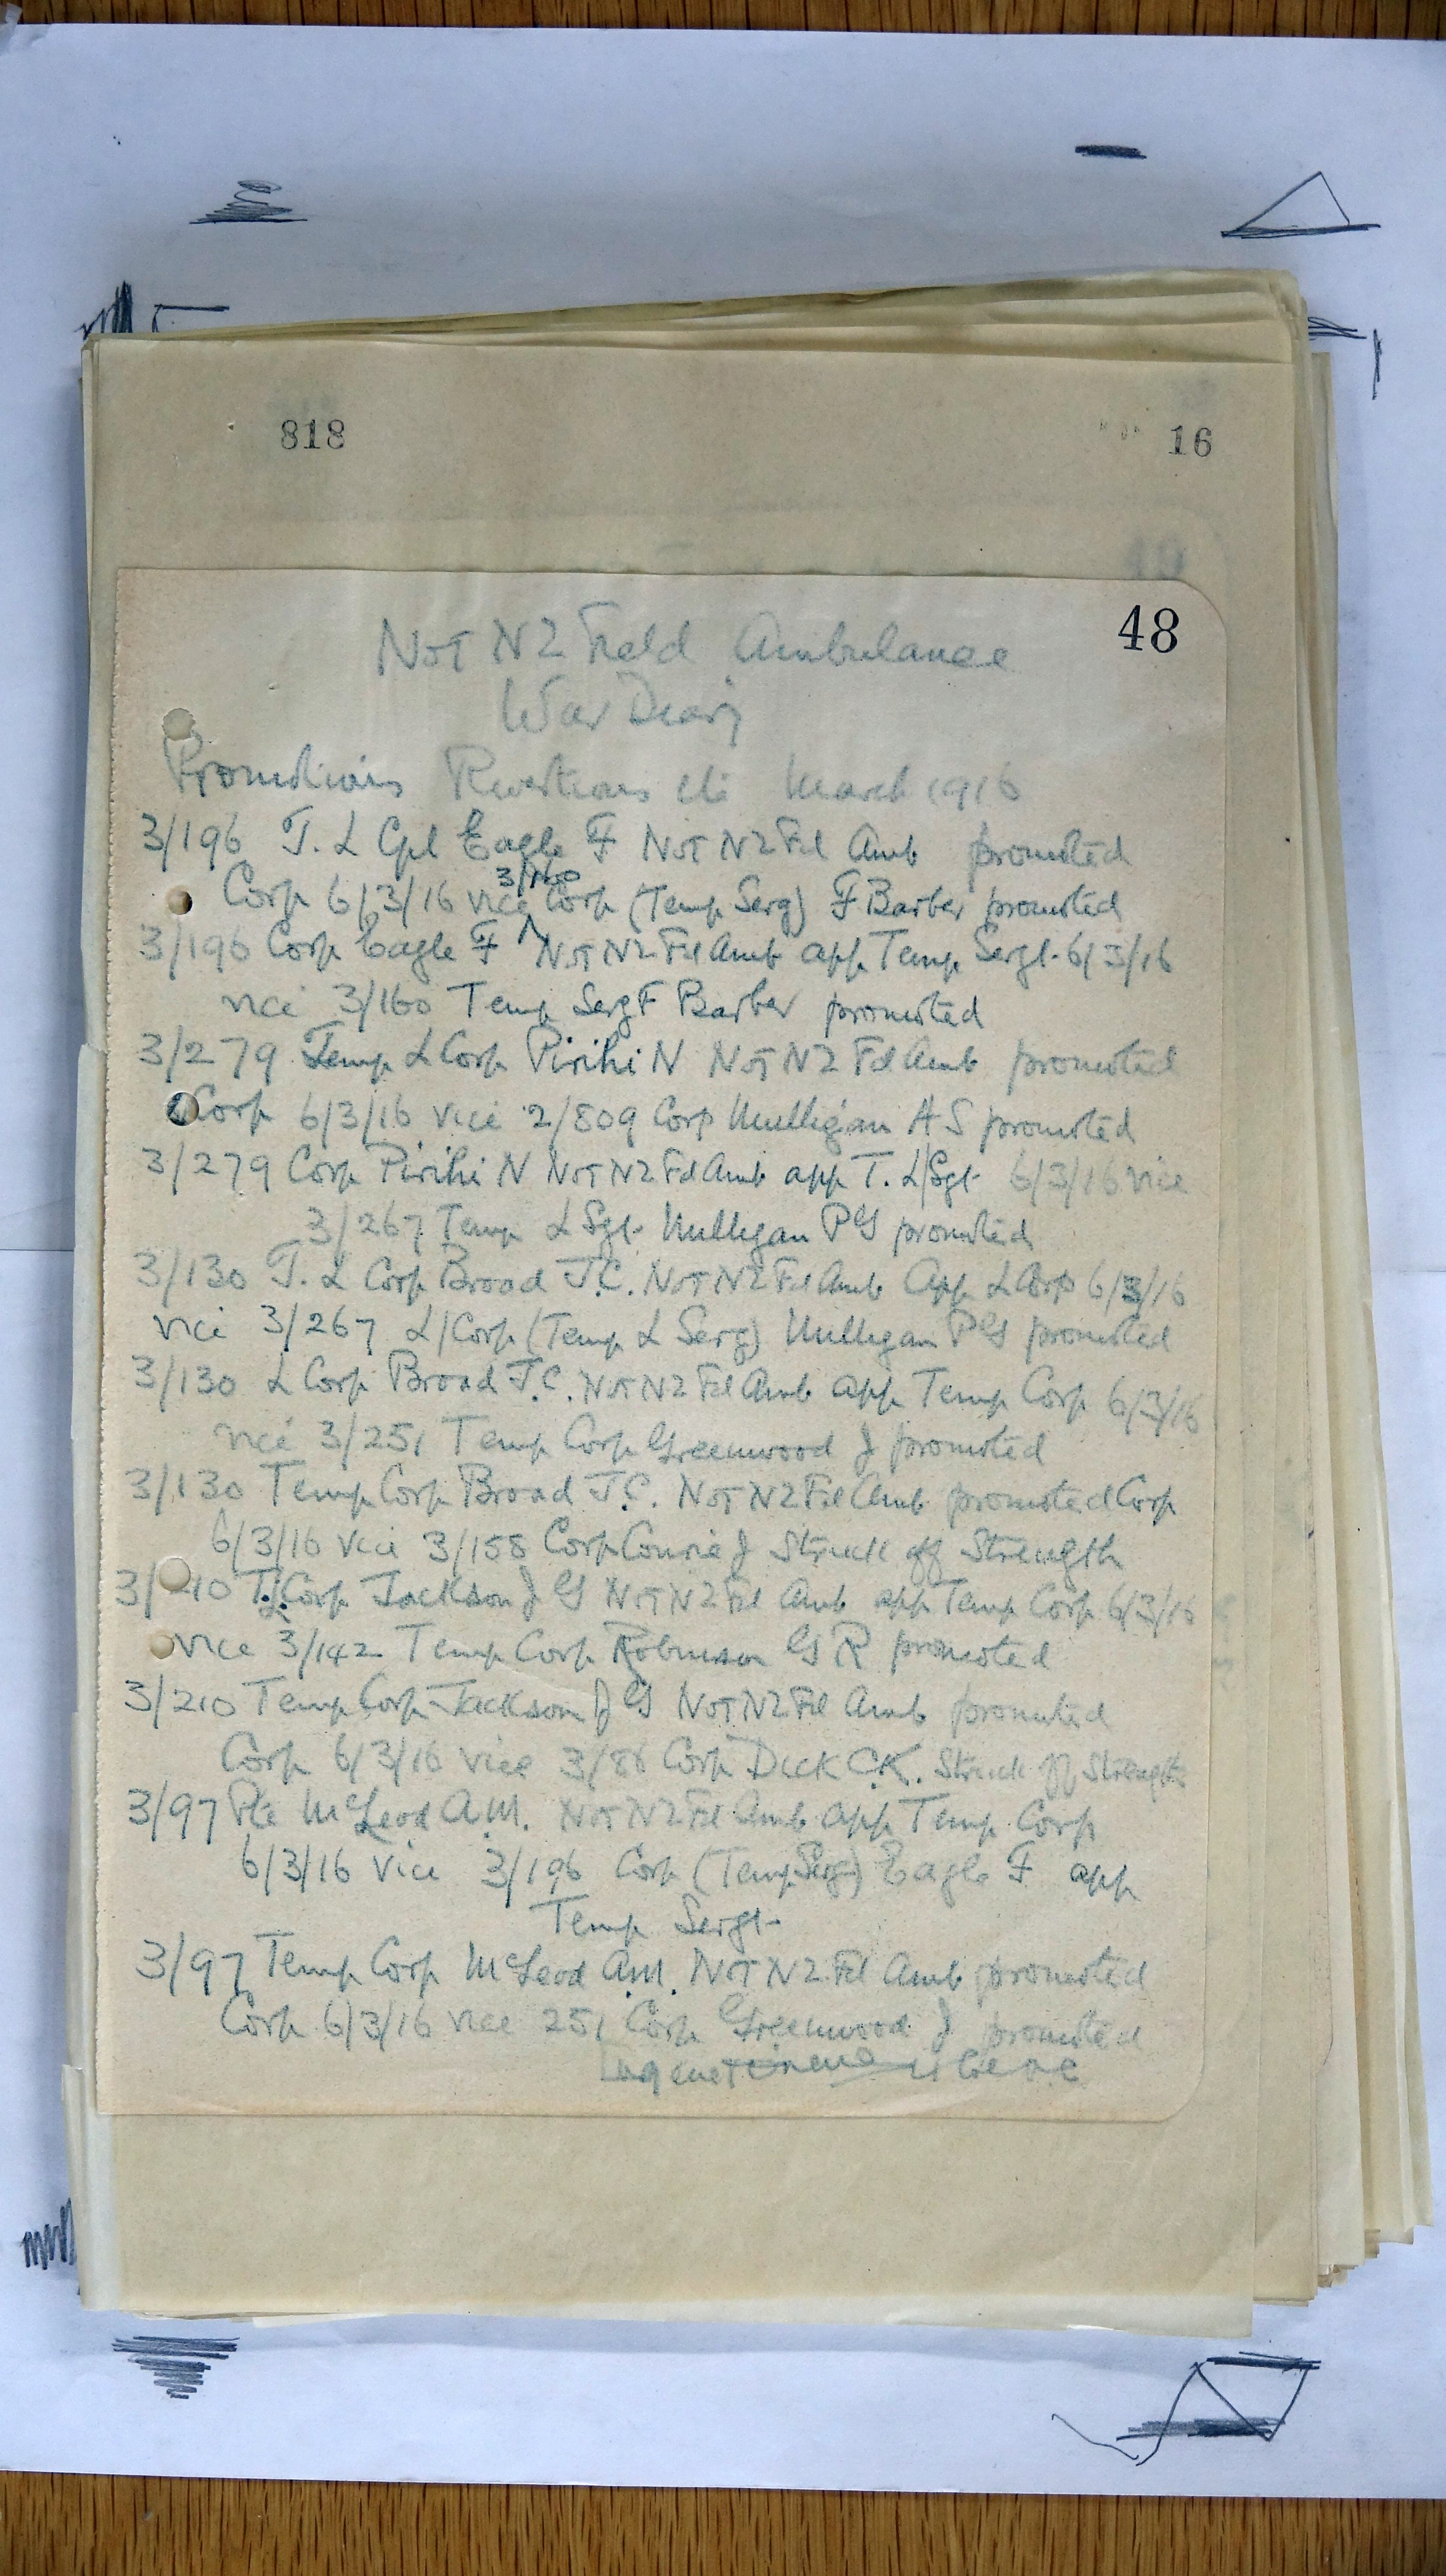 818
16
48
No1 NZ Field Ambulance
War Diary
Promotions Revertions etc March 1916
3/196 T. L Cpl Eagle F No1 NZ Fd Amb promoted
3/160
Corp 6/3/16 vice Corp (Temp Serg) F Barber promoted
3/196 Corp Eagle F No1 NZ Fd Amb app Temp Sergt. 6/3/16
vice 3/160 Temp Serg F Barber promoted
3/279 Temp L Corp Pirihi N No1 NZ Fd Amb promoted
Corp 6/3/16 vice 2/809 Corp Mulligan A S promoted
3/279 Corp Pirihi N No1 NZ Fd Amb app T. L/Sgt 6/3/16 vice
3/267 Temp L Sgt. Mulligan P G promoted
3/130 T. L Corp Broad J.C. No1 NZ Fd Amb App L Corp 6/3/16
vice 3/267 L/Corp (Temp L Serg) Mulligan P G promoted
3/130 L Corp Broad J.C. No1 NZ Fd Amb app Temp Corp 6/3/16
vice 3/251 Temp Corp Greenwood J promoted
3/130 Temp Corp Broad J.C. No1 NZ Fd Amb promoted Corp
6/3/16 vice 3/158 Corp J Struck off Strength
3/210 T.L. Corp Jackson J G No1 NZ Fd Amb app Temp Corp 6/3/16
vice 3/142 Temp Corp Robinson G R promoted
3/210 Temp Corp Jackson J G No1 NZ Fd Amb promoted
Corp 6/3/16 vice 3/86 Corp Dick C.K. Struck off Strength
3/97 Pte McLeod A.M. No1 NZ Fd Amb app Temp Corp
6/3/16 vice 3/196 Corp (Temp Serg) Eagle F app
Temp Sergt
3/97 Temp Corp McLeod A.M. No1 NZ Fd Amb promoted
Corp 6/3/16 vice 251 Corp Greenwood J promoted